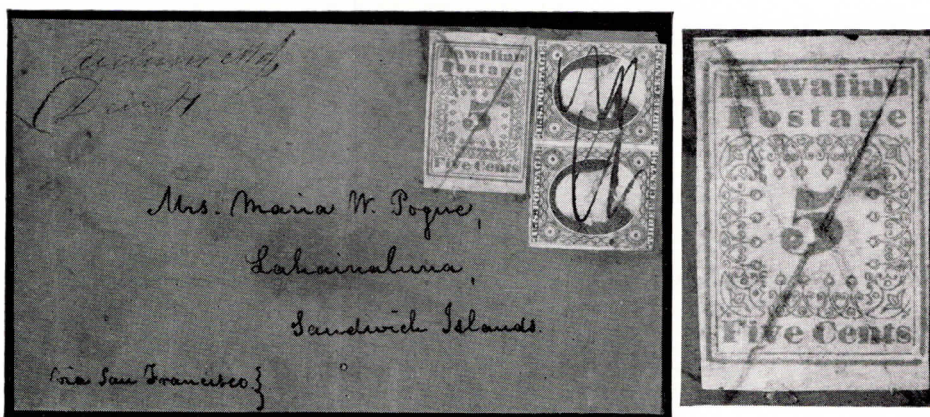 Hawaiian
Postage
5
Five Cents
U.S. POSTAGE
Mrs. Maria W. Pogue,
Lahainaluna,
Sandwich Islands.
via San Francisco.
Hawaiian
Postage
5
Five Cents